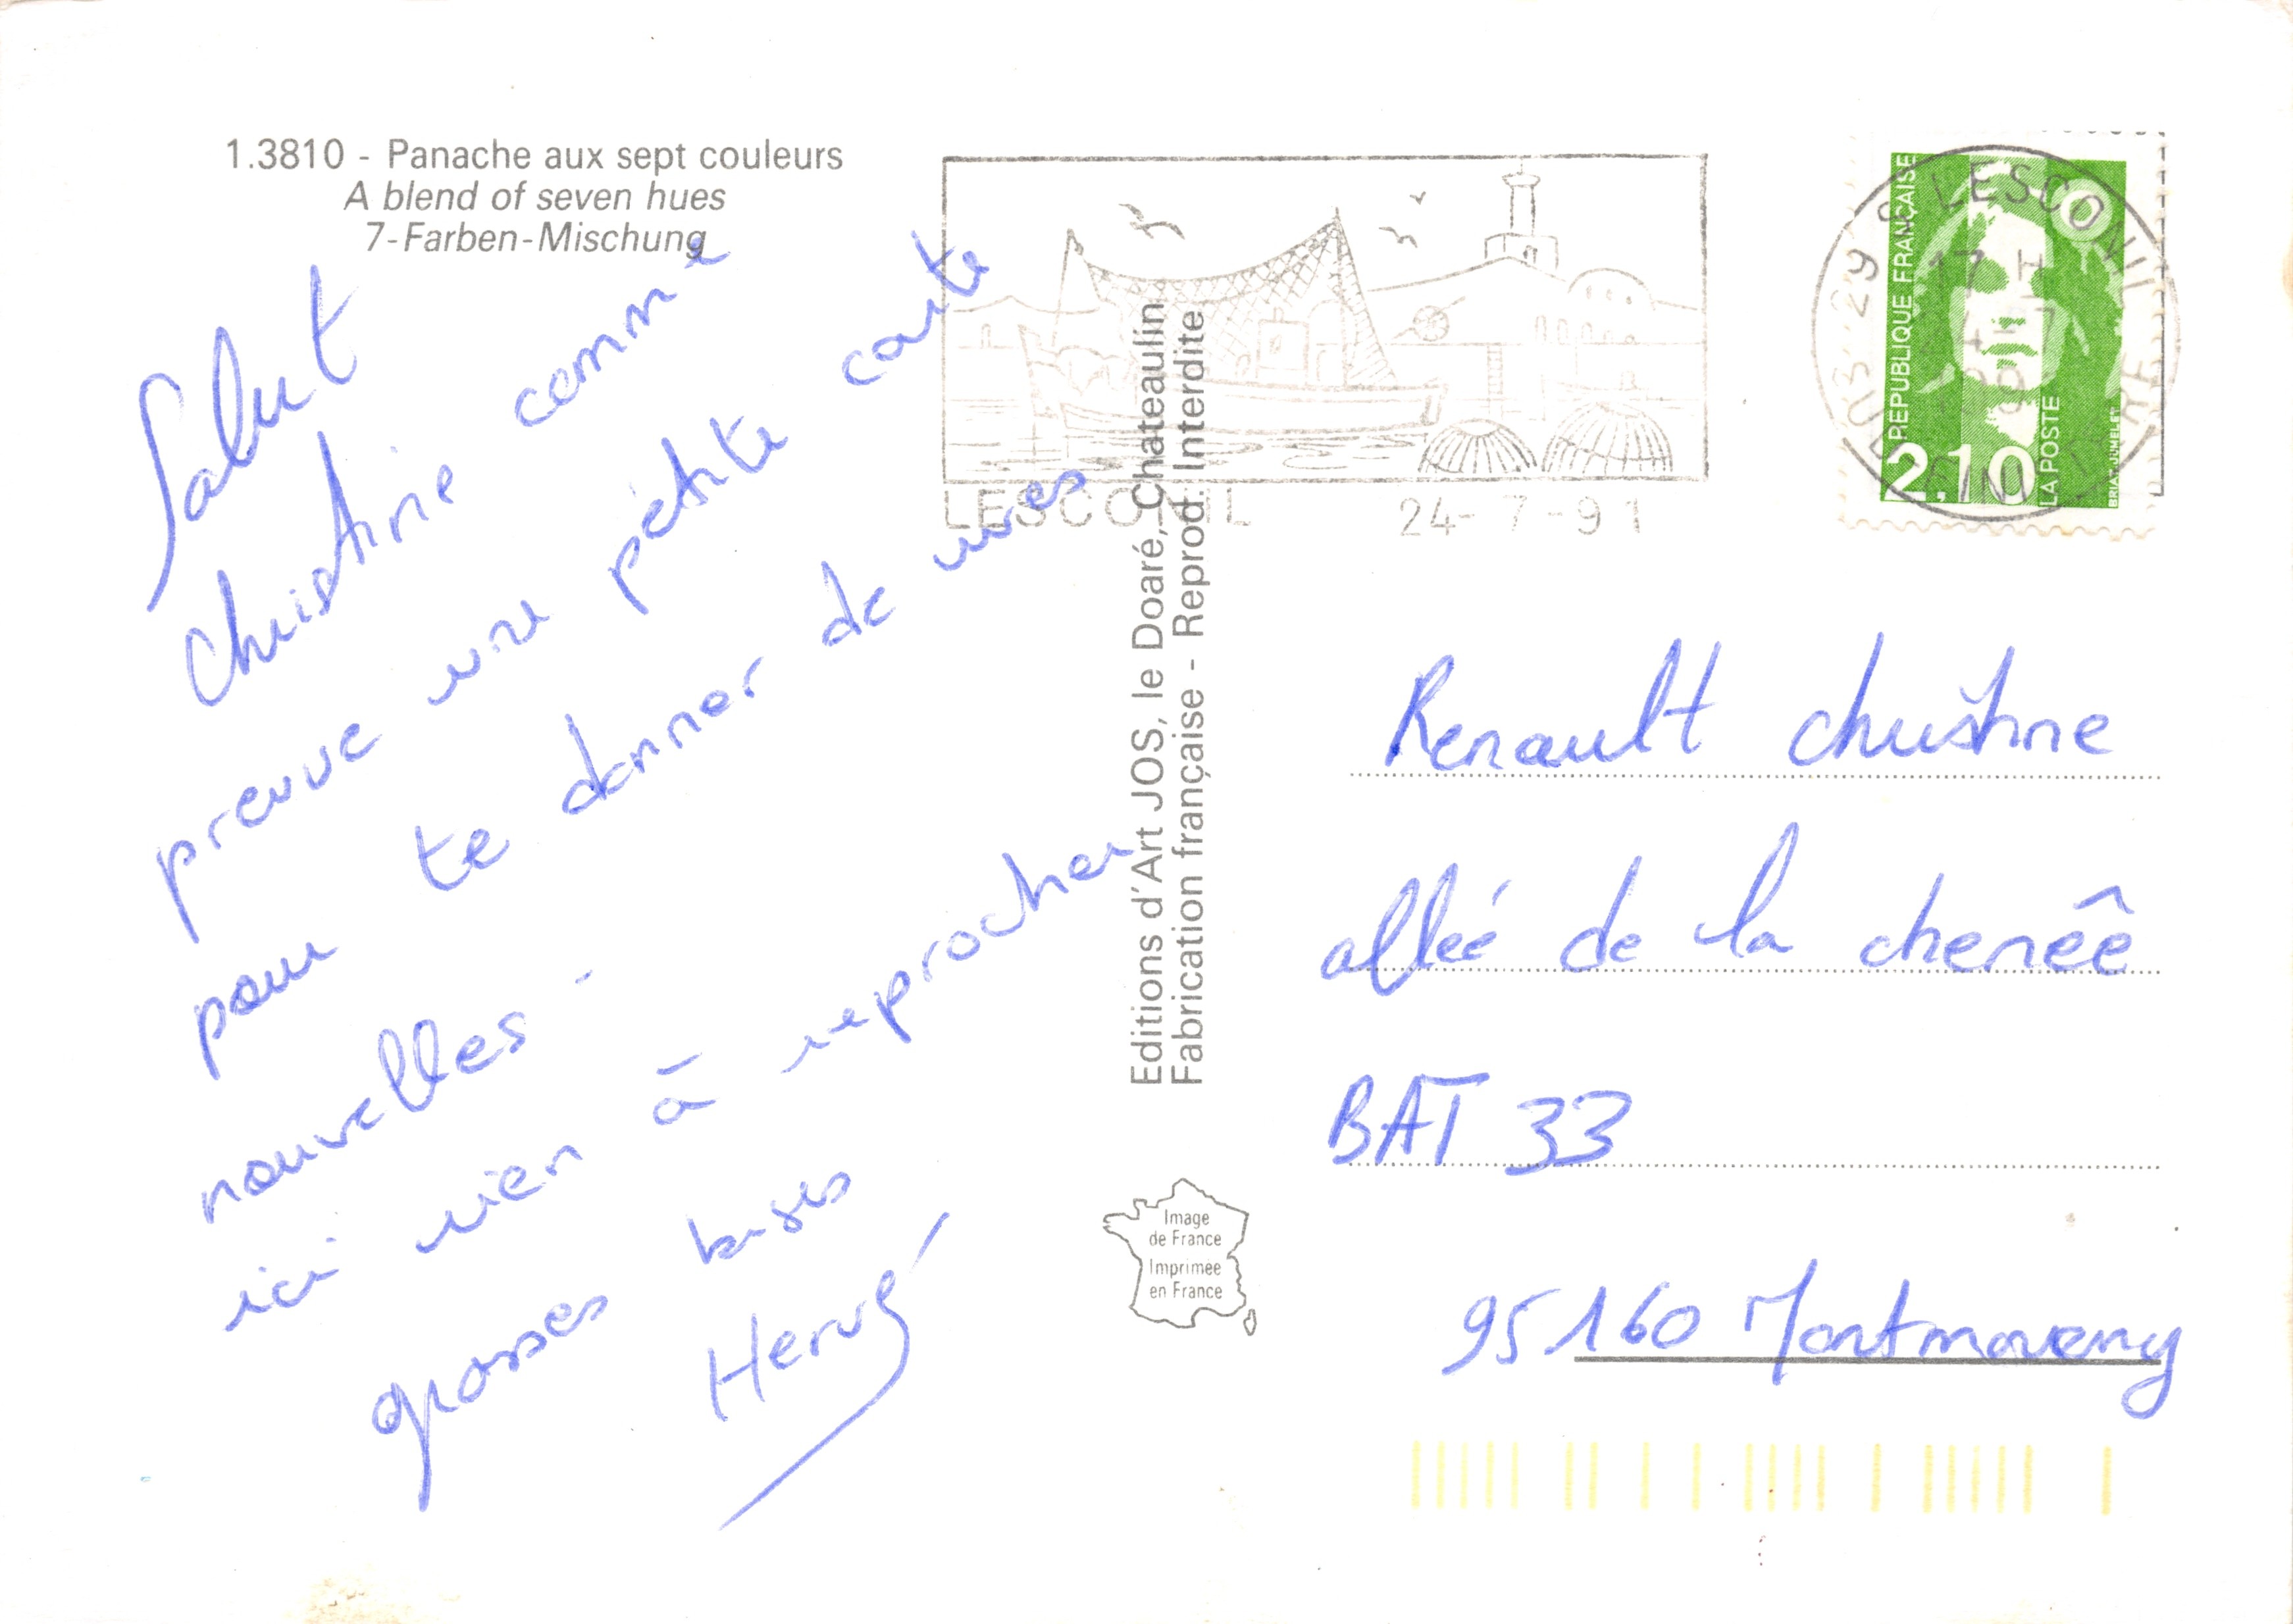 1.3810 - Panache aux sept couleurs
A blend of seven hues
7-Farben-Mischung
Salut
Christine comme
preuve une petite carte
pour te donner de mes
nouvelles -
ici rien à reprocher
grosses bises
Hervé
Editions d'Art JOS, le Doaré, Chateaulin
Fabrication française - Reprod. Interdite
Image
de France
Imprimée
en France
LESCONIL 24-7-91
29 LESCONIL
17 H
FINISTERE
RÉPUBLIQUE FRANÇAISE
2.10
LA POSTE
BRIAT-JUMELET
Renault christine
alleé de la chenêê
BAT 33
95160 Montmoreny